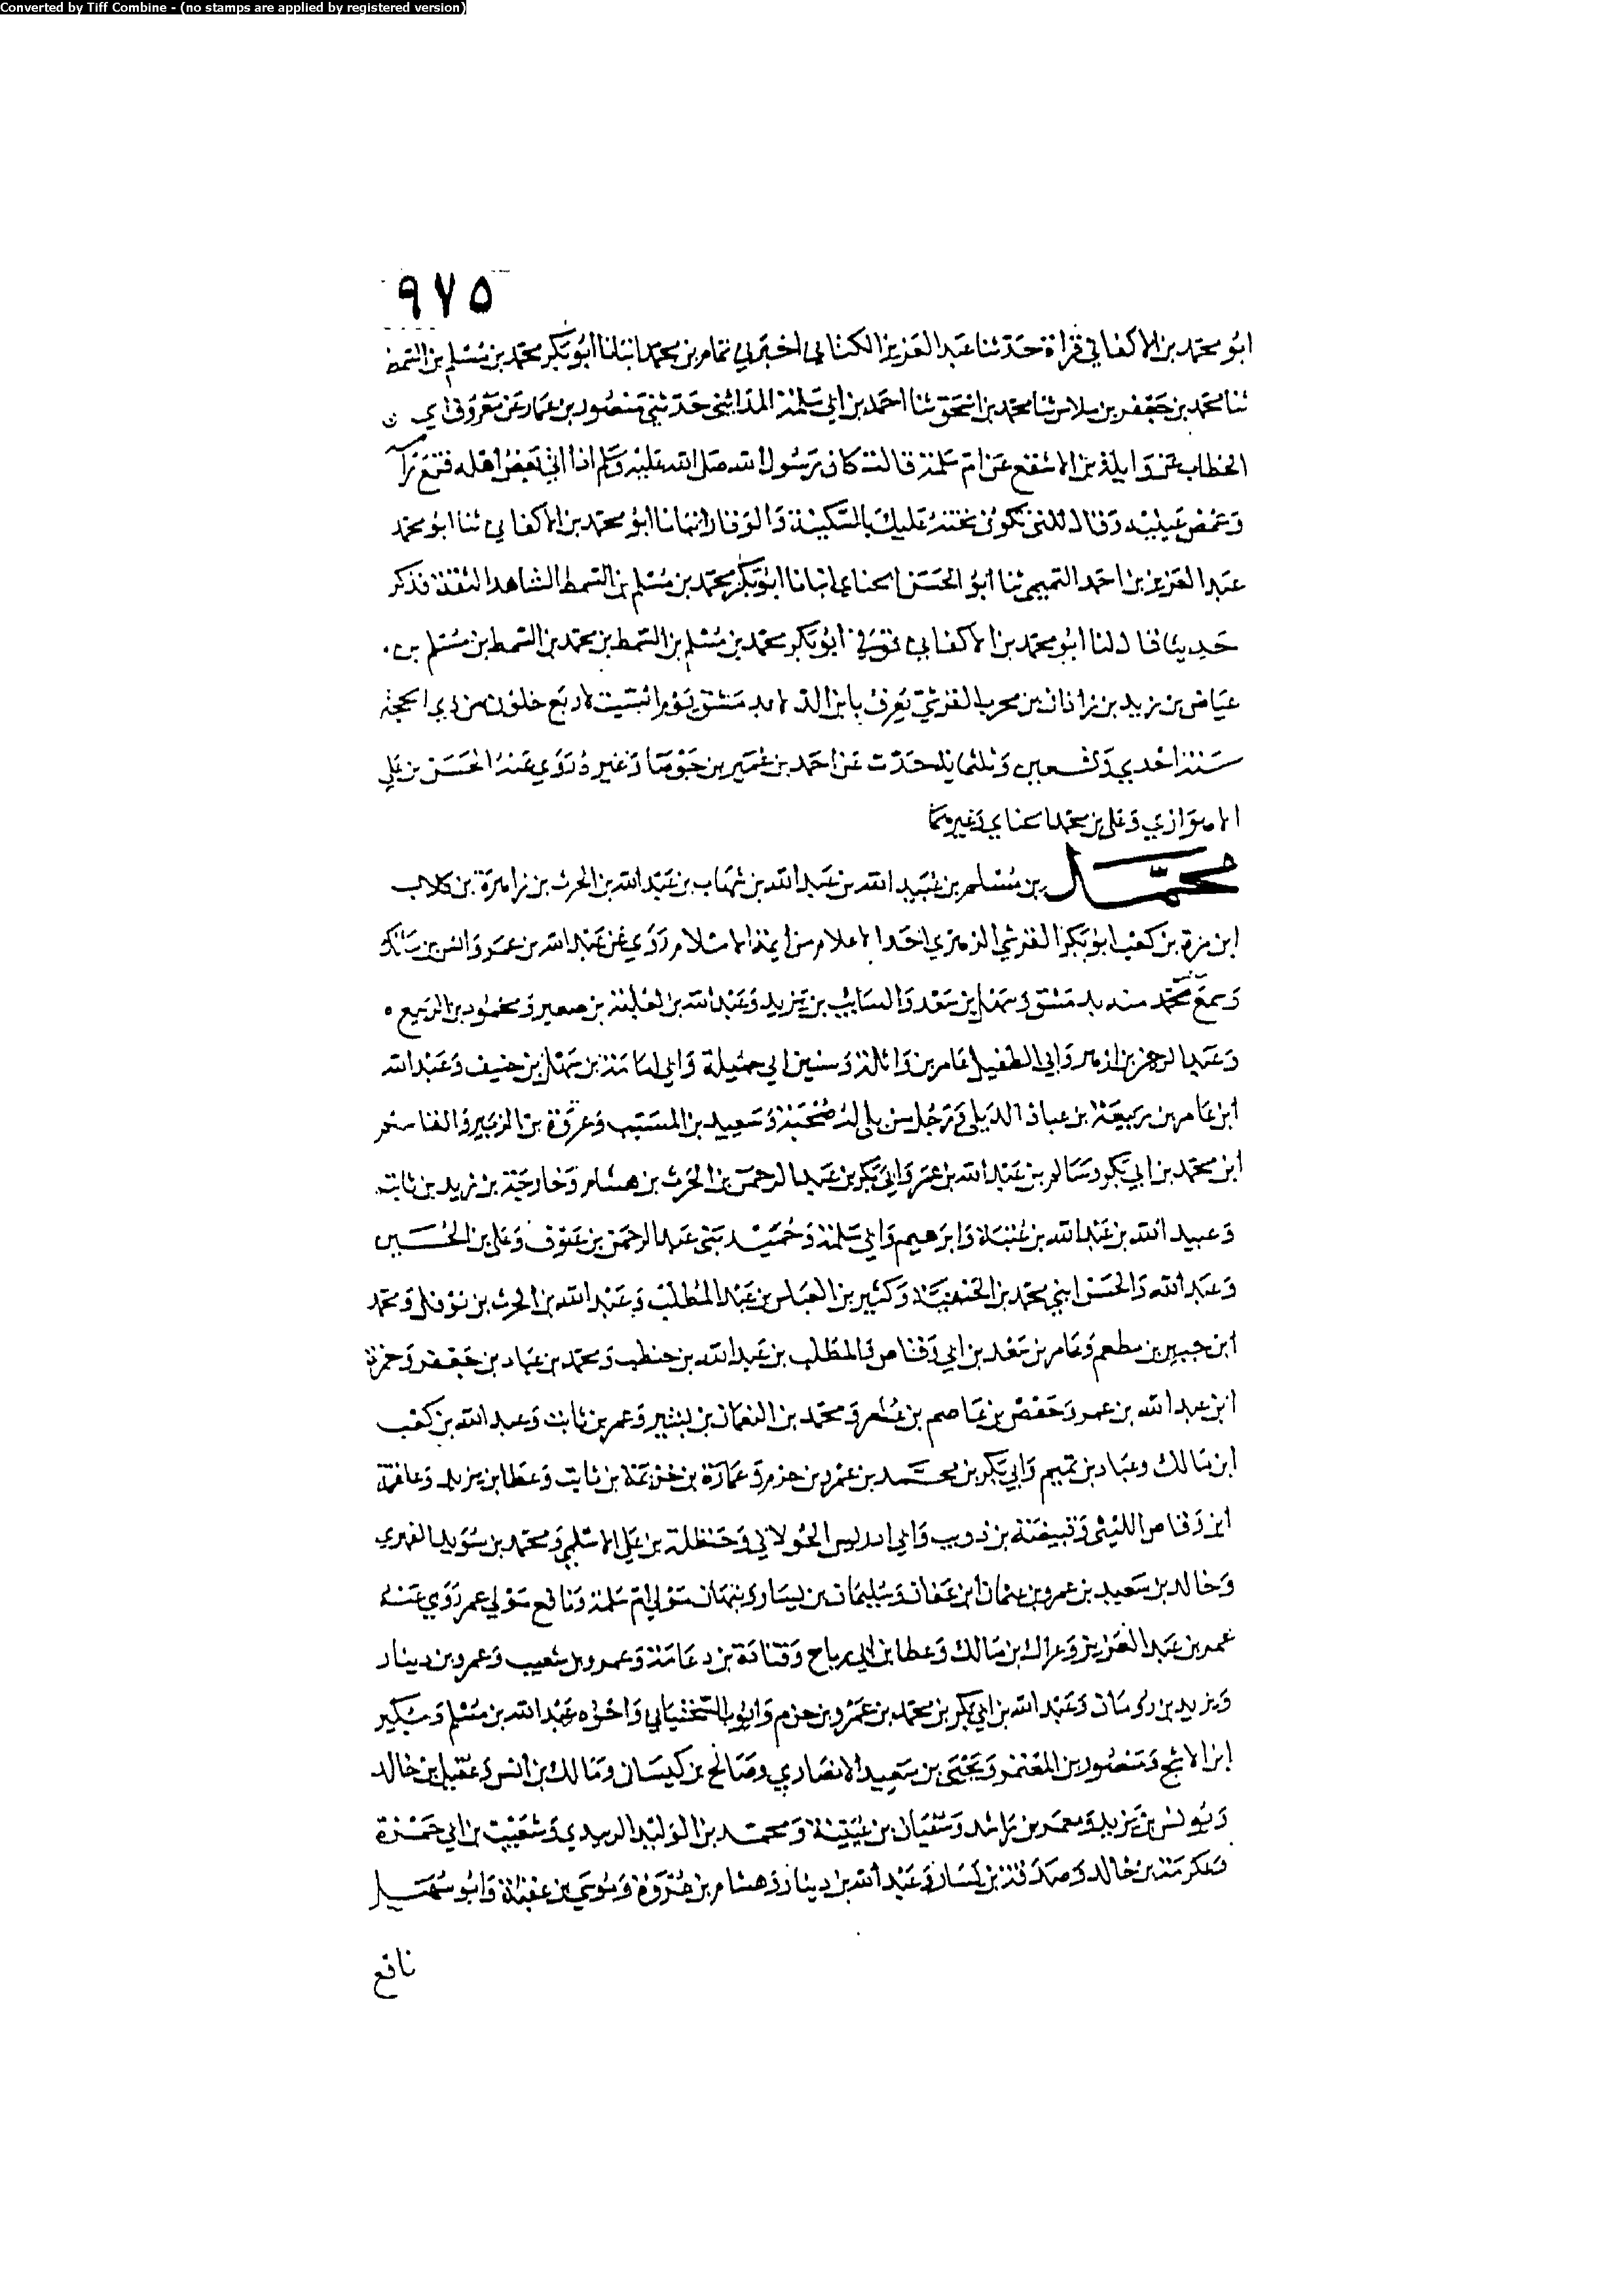 Converted by Tiff Combine - (no stamps are applied by registered version)
٩٧٥
ابو محمد بن الاكفاني قراة حدثنا عبد العزيز الكتاني اخبرني تمام بن محمد انبانا ابو بكر محمد بن مسلم بن السمط
ثنا محمد بن جعفر بن ملاس ثنا محمد بن اسحق ثنا احمد بن ابي سلمة المدائني حدثني منصور بن عمار عن معروف ابي
الخطاب عن واثلة بن الاسقع عن ام سلمة قالت كان رسول الله صلى الله عليه وسلم اذا اتي بعض اهله قنع راسه
وغمض عينيه وقال للتي تكون تحته عليك بالسكينة والوقار انبانا ابو محمد بن الاكفاني ثنا ابو محمد
عبد العزيز بن احمد التميمي ثنا ابو الحسن الحناي انبانا ابو بكر محمد بن مسلم بن السمط الشاهد الثقة فذكر
حديثا قال لنا ابو محمد بن الاكفاني توفي ابو بكر محمد بن مسلم بن السمط بن محمد بن السمط بن مسلم بن
عياض بن زيد بن زاذان بن محرب القرشي يعرف بابن الدلا بدمشق يوم السبت لاربع خلون من ذي الحجة
سنة احدي وتسعين وثلثماية حدث عن احمد بن عمير بن جوصا وغيره روي عنه الحسن بن علي
الاهوازي وعلي بن محمد الحناي وغيرهما
محمد بن مسلم بن عبيد الله بن عبد الله بن شهاب بن عبد الله بن الحرث بن زهرة بن كلاب
ابن مرة بن كعب ابو بكر القرشي الزهري احد الاعلام من ايمة الاسلام روي عن عبد الله بن عمر وانس بن مالك
وسمع منه بدمشق وسهل بن سعد والسايب بن يزيد وعبد الله بن ثعلبة بن صعير ومحمود بن الربيع
وعبد الرحمن بن ازهر وابي الطفيل عامر بن واثلة وسنين ابي جميلة وابي امامة بن سهل بن حنيف وعبد الله
ابن عامر بن ربيعة بن عباد الديلي ورجل من بلي له صحبة وسعيد بن المسيب وعروة بن الزبير والقاسم
ابن محمد بن ابي بكر وسالم بن عبد الله بن عمر وابي بكر بن عبد الرحمن بن الحرث بن هشام وخارجة بن زيد بن ثابت
وعبيد الله بن عبد الله بن عتبة وابرهيم وابي سلمة وحميد بني عبد الرحمن بن عوف وعلي بن الحسين
وعبد الله والحسن ابني محمد بن الحنفية وكثير بن العباس بن عبد المطلب وعبد الله بن الحرث بن نوفل ومحمد
ابن جبير بن مطعم وعامر بن سعد بن ابي وقاص والمطلب بن عبد الله بن حنطب ومحمد بن عباد بن جعفر وحمزة
ابن عبد الله بن عمر وحفص بن عاصم بن عمر ومحمد بن النعمان بن بشير وعمر بن ثابت وعبد الله بن كعب
ابن مالك وعباد بن تميم وابي بكر بن محمد بن عمرو بن حزم وعمارة بن خزيمة بن ثابت وعطا بن يزيد وعلقمة
ابن وقاص الليثي وقبيصة بن ذويب وابي ادريس الخولاني وحنظلة بن علي الاسلمي ومحمد بن سويد الفهري
وخالد بن سعيد بن عمرو بن عثمان ابن عفان وسليمان بن يسار ونبهان مولي ام سلمة ونافع مولي عمر روي عنه
عمر بن عبد العزيز وعراك بن مالك وعطا بن ابي رباح وقتادة بن دعامة وعمرو بن شعيب وعمرو بن دينار
ويزيد بن رومان وعبد الله بن ابي بكر بن محمد بن عمرو بن حزم وايوب السختياني واخوه عبد الله بن مسلم وبكير
ابن الاشج ومنصور بن المعتمر ويحيى بن سعيد الانصاري وصالح بن كيسان ومالك بن انس وعقيل بن خالد
ويونس بن يزيد ومعمر بن راشد وسفيان بن عيينة ومحمد بن الوليد الزبيدي وشعيب بن ابي حمزة
وعكرمة بن خالد وصدقة بن يسار وعبد الله بن دينار وهشام بن عروة وموسى بن عقبة وابو سهيل
نافع